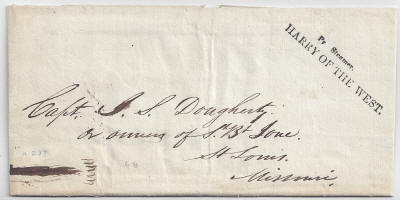 Pr Steamer.
HARRY OF THE WEST.
Capt. J. S. Dougherty.
or owners of S. Bt Ione.
St Louis.
Missouri.